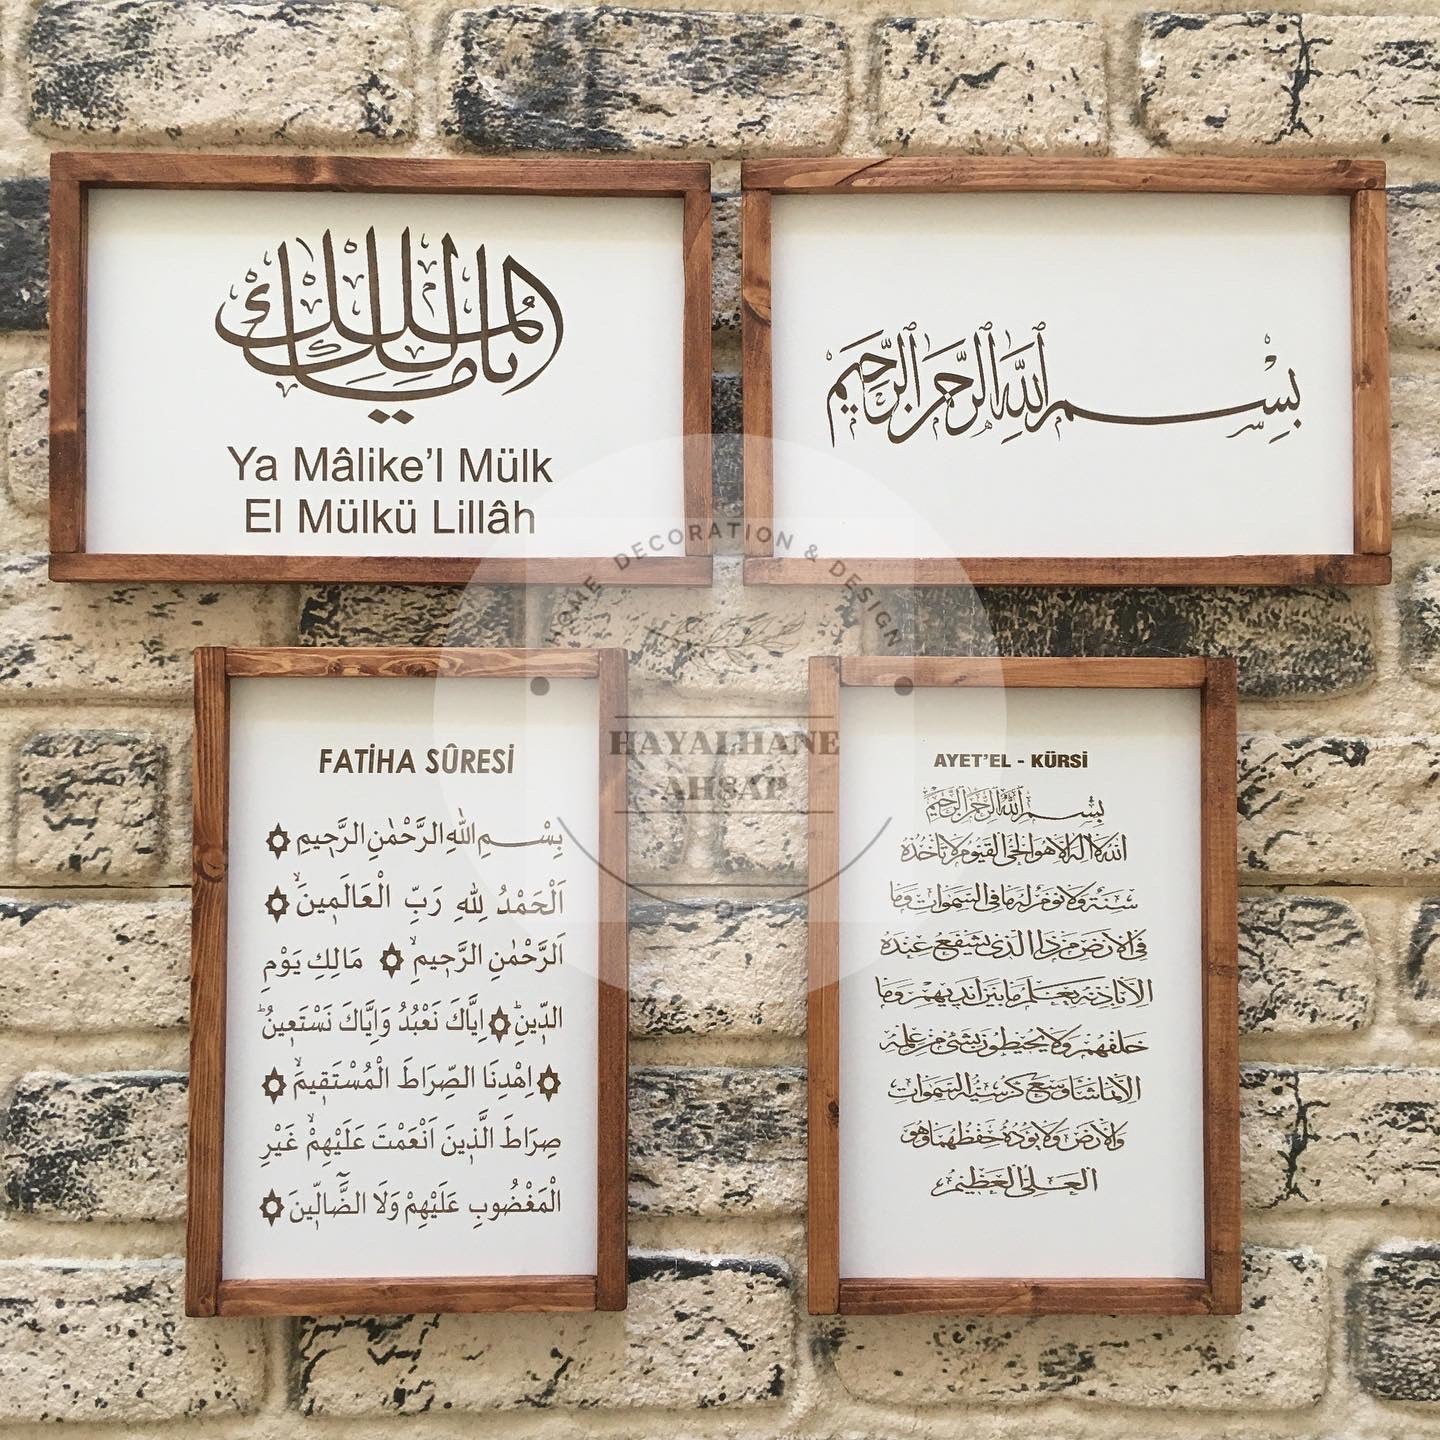 يا مالك الملك
Ya Mâlike'l Mülk
El Mülkü Lillâh
بِسْمِ اللّٰهِ الرَّحْمٰنِ الرَّحِيمِ
HOME DECORATION & DESIGN
HAYALHANE
AHŞAP
FATİHA SÛRESİ
بِسْمِ اللّٰهِ الرَّحْمٰنِ الرَّحِيمِ
اَلْحَمْدُ لِلّٰهِ رَبِّ الْعَالَمِينَۙ
اَلرَّحْمٰنِ الرَّحِيمِۙ مَالِكِ يَوْمِ
الدِّينِۜ اِيَّاكَ نَعْبُدُ وَاِيَّاكَ نَسْتَعِينُۜ
اِهْدِنَا الصِّرَاطَ الْمُسْتَقِيمَۙ
صِرَاطَ الَّذِينَ اَنْعَمْتَ عَلَيْهِمْۙ غَيْرِ
الْمَغْضُوبِ عَلَيْهِمْ وَلَا الضَّٓالِّينَ
AYET'EL - KÜRSİ
بسم الله الرحمن الرحيم
الله لا اله الا هو الحي القيوم لا تأخذه
سنة ولا نوم له ما في السموات وما
في الارض من ذا الذي يشفع عنده
الا باذنه يعلم ما بين ايديهم وما
خلفهم ولا يحيطون بشئ من علمه
الا بما شاء وسع كرسيه السموات
والارض ولا يؤده حفظهما وهو
العلي العظيم